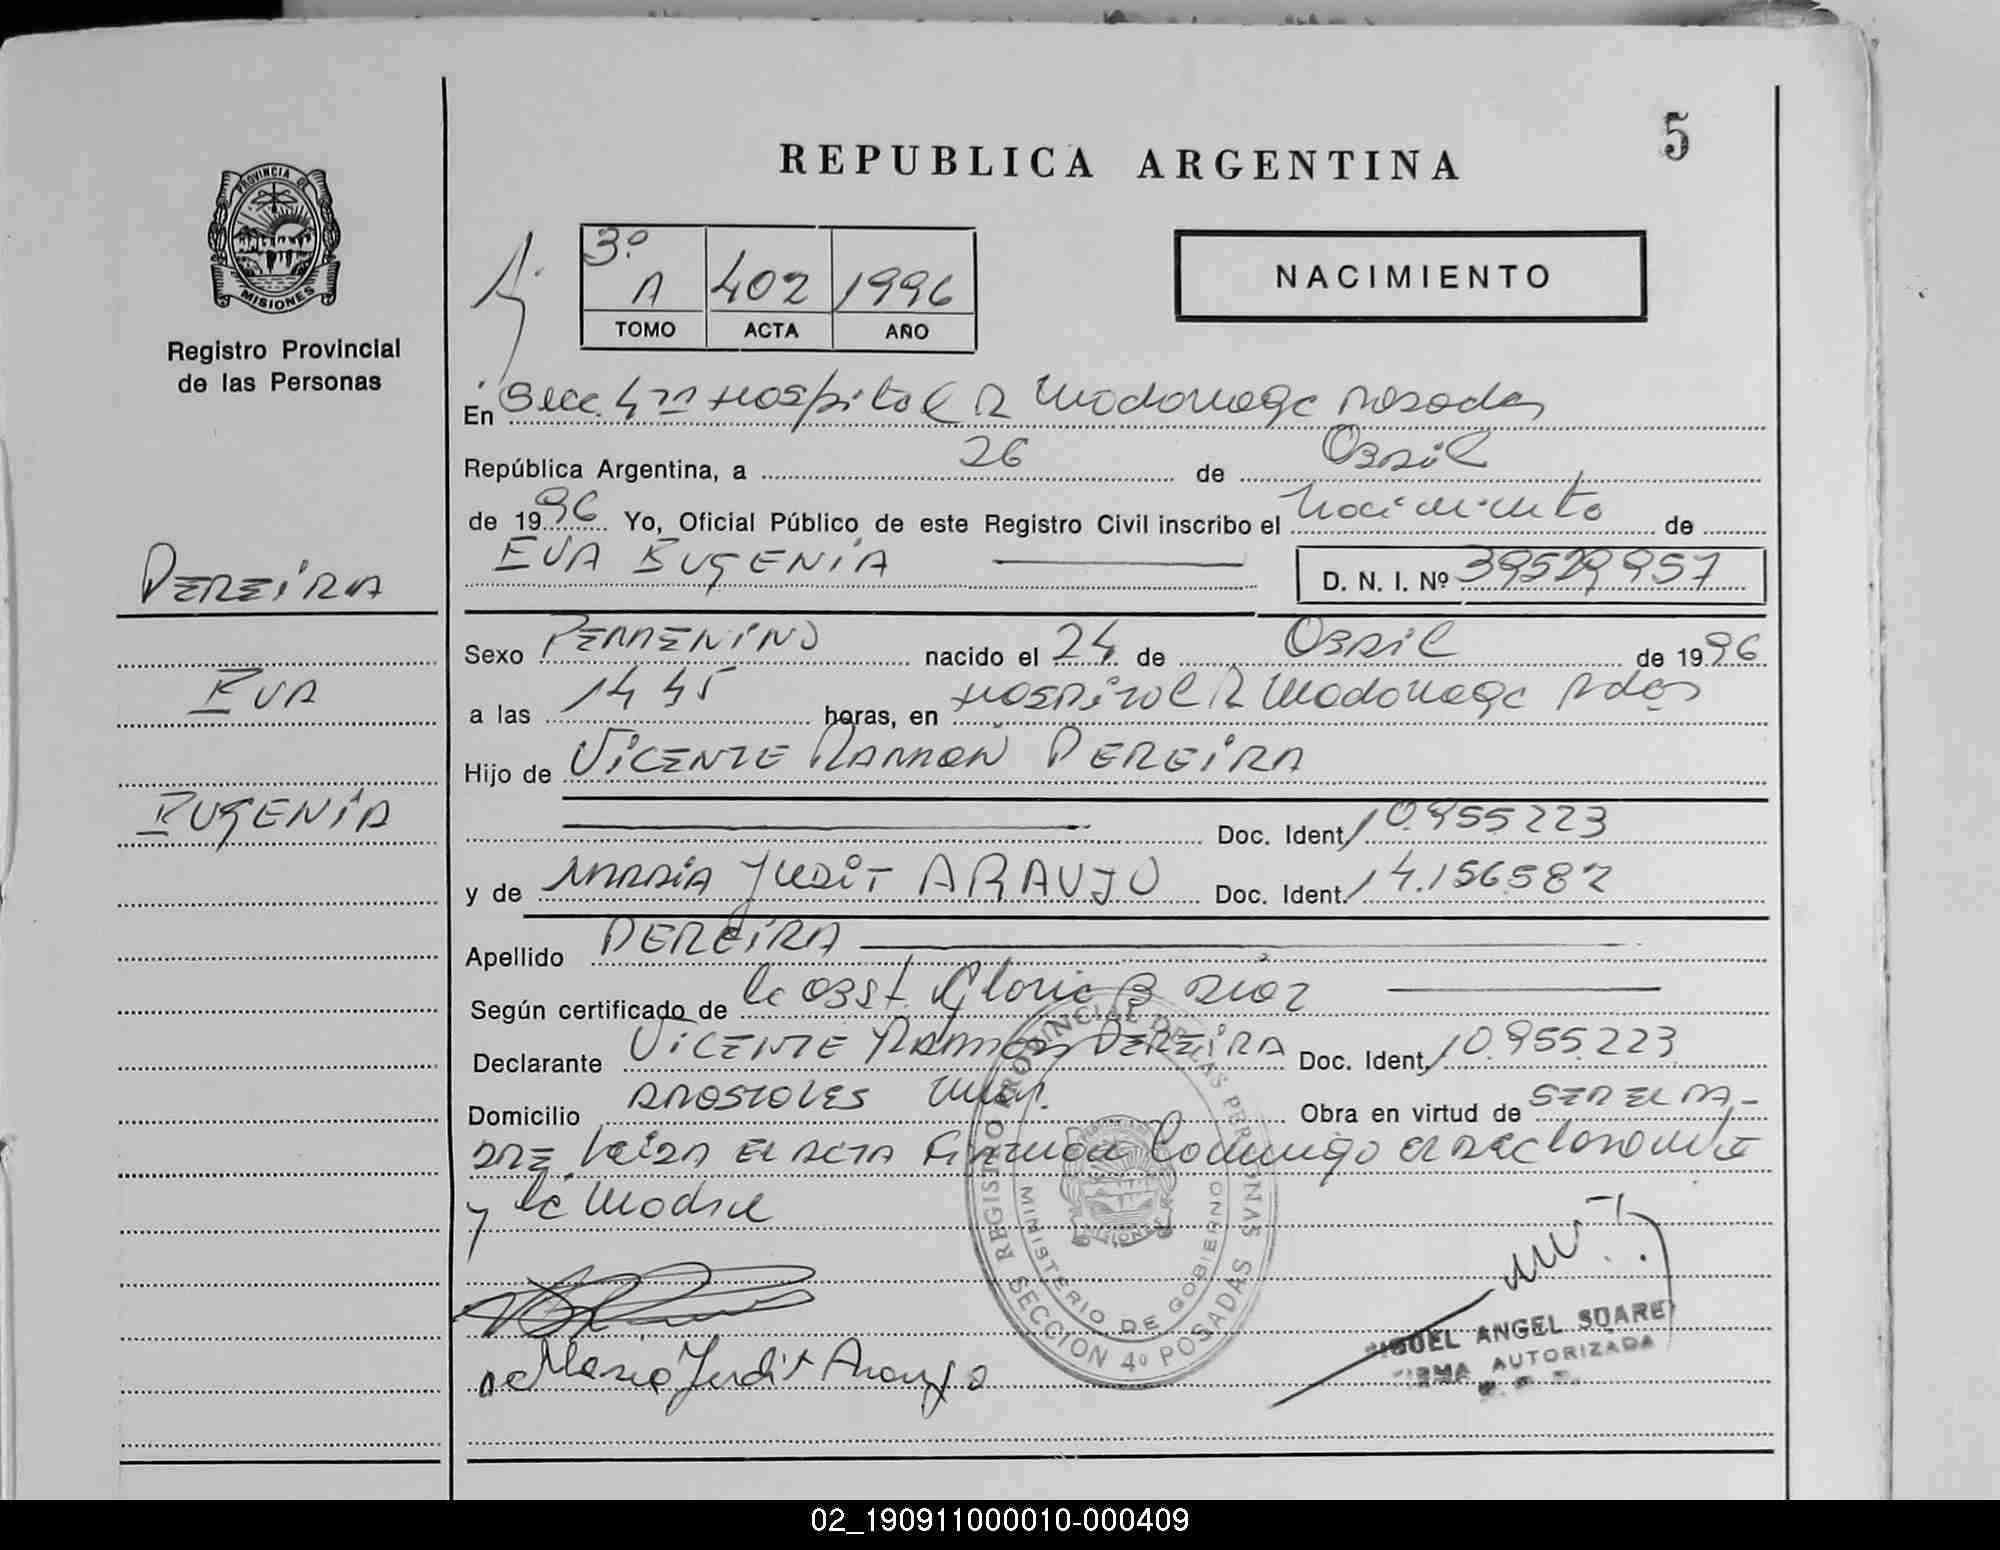 5
REPUBLICA ARGENTINA
PROVINCIA DE
MISIONES
Registro Provincial
de las Personas
3º A 402 1996
TOMO ACTA AÑO
NACIMIENTO
En Secc. 4ta Hospital R Madariaga Posadas
República Argentina, a 26 de Abril
de 1996 Yo, Oficial Público de este Registro Civil inscribo el Nacimiento de
EVA EUGENIA D. N. I. Nº 39529957
PEREIRA
EVA
EUGENIA
Sexo FEMENINO nacido el 24 de Abril de 1996
a las 14 45 horas, en Hospital R Madariaga Pdas
Hijo de VICENTE RAMON PEREIRA
Doc. Ident. 10.955223
y de MARIA JUDIT ARAUJO Doc. Ident. 14.156582
Apellido PEREIRA
Según certificado de la Obst. Gloria B Diaz
Declarante VICENTE RAMON PEREIRA Doc. Ident. 10.955.223
Domicilio APOSTOLES Mnes. Obra en virtud de SER EL PA-
DRE Leida EL ACTA Firman Conmigo el Declarante
y la Madre
REGISTRO PROVINCIAL DE LAS PERSONAS
MINISTERIO DE GOBIERNO
SECCION 4º POSADAS
MISIONES
Maria Judit Araujo
MIGUEL ANGEL SUAREZ
FIRMA AUTORIZADA
02_190911000010-000409